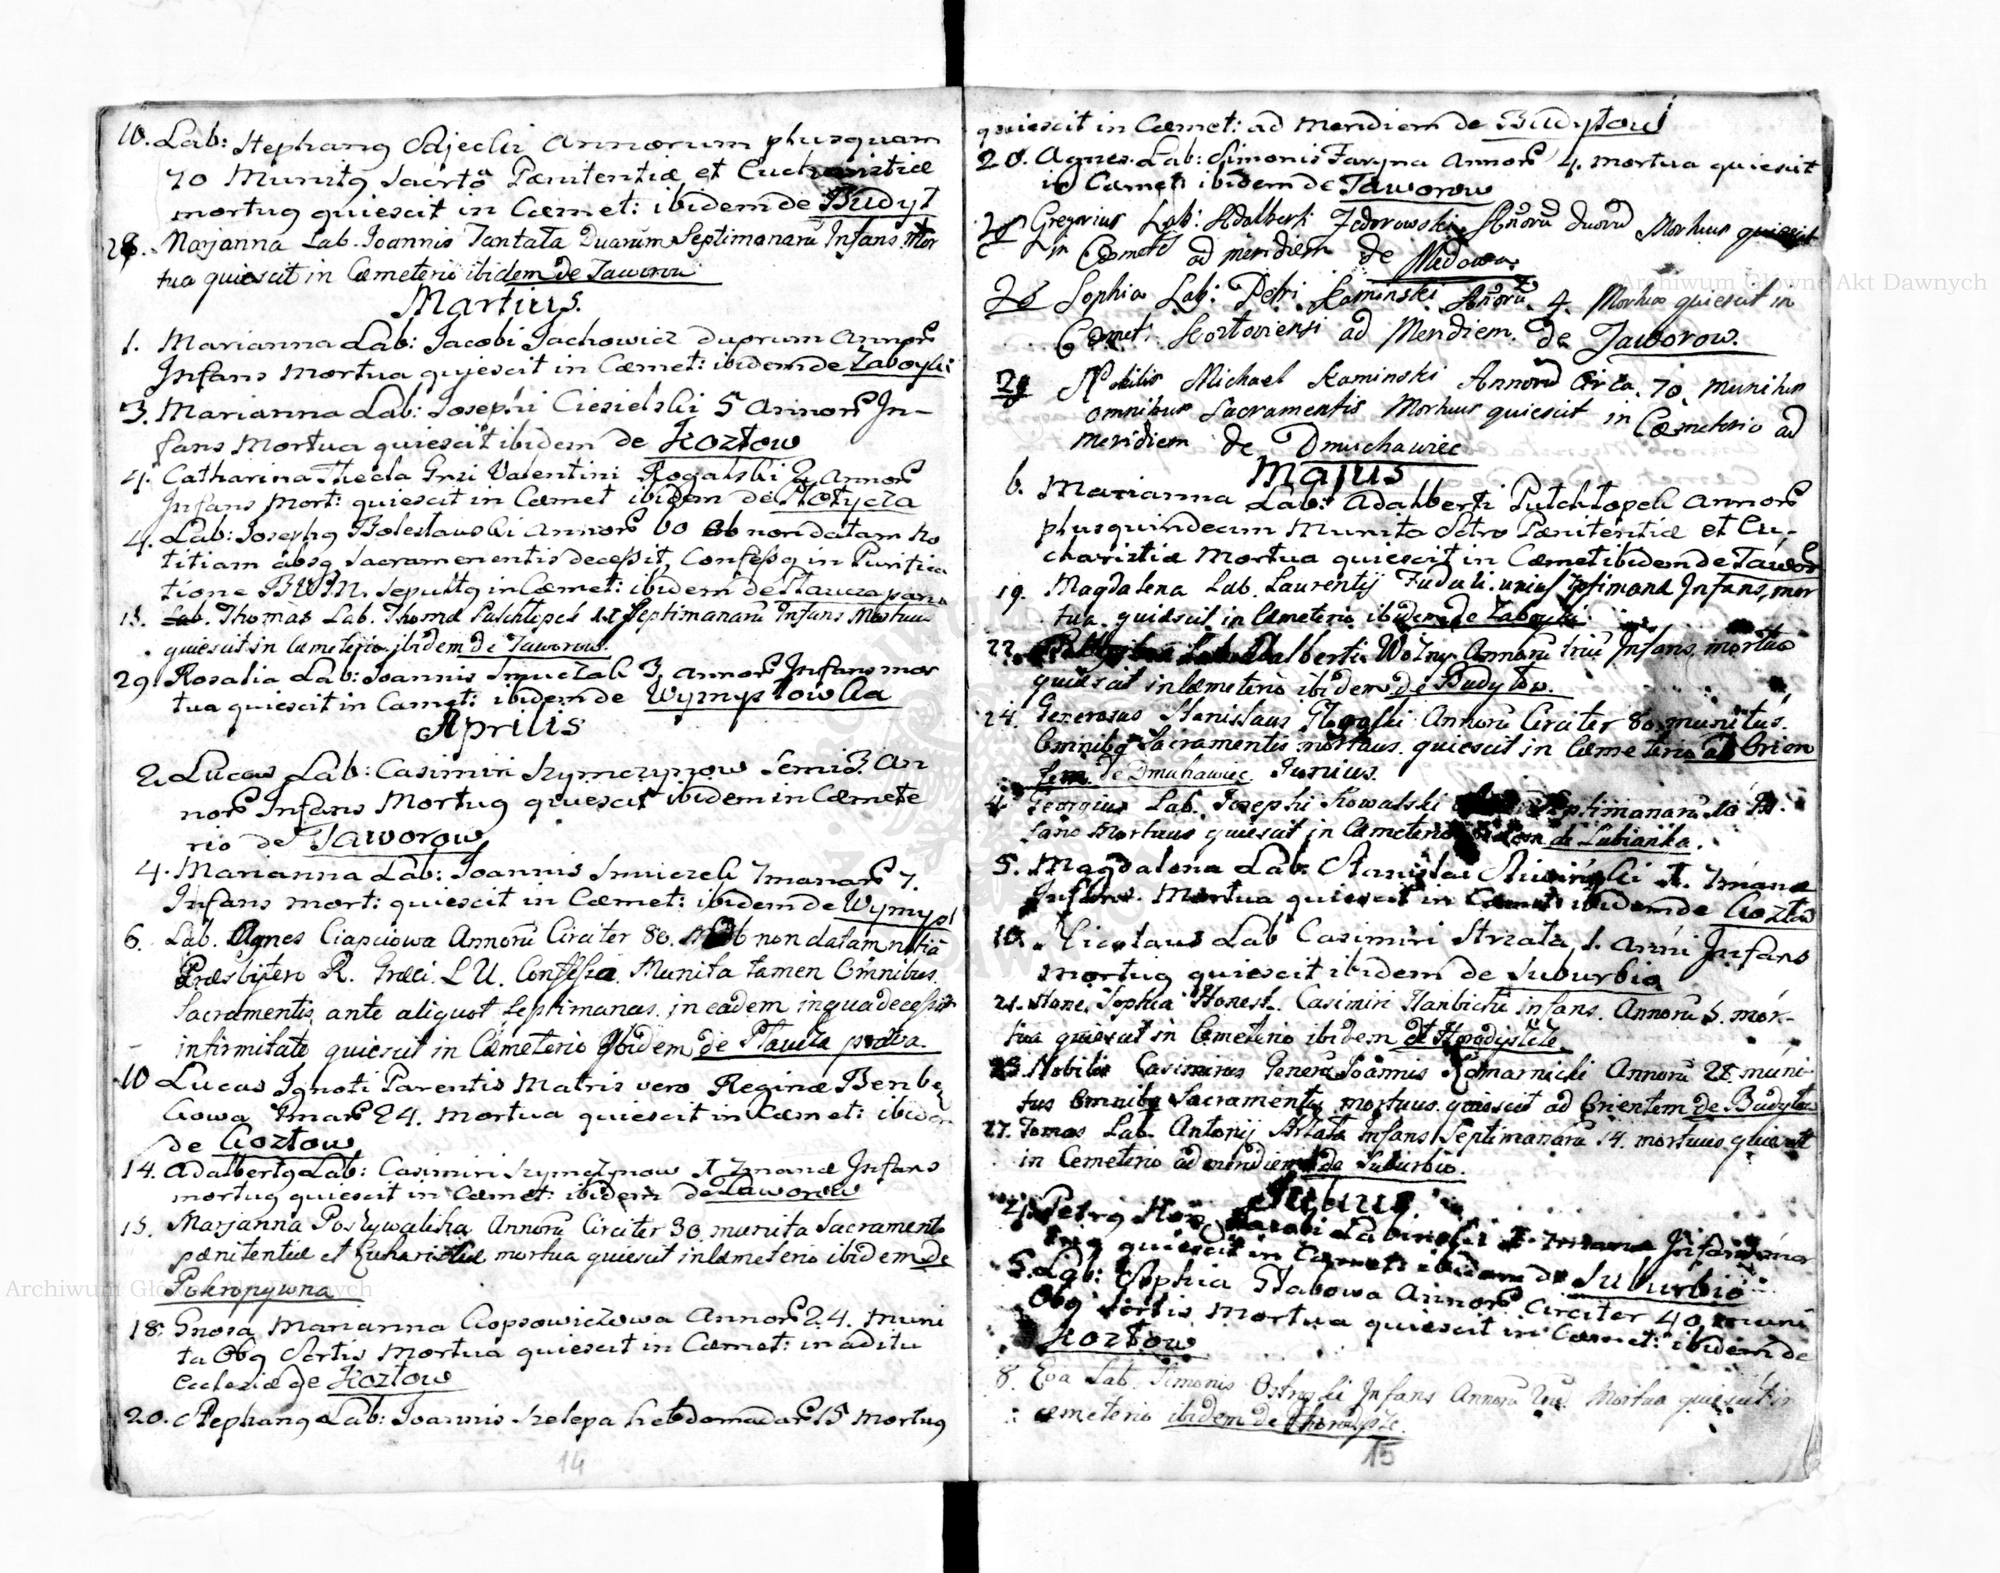 10. Lab: Stephang Odjecki Annorum plusquam
70 Munitg Sacrto Pænitentiæ et Eucharistiæ
mortug quiescit in Cæmet: ibidem de Budył
28. Marjanna Lab. Joannis Tantała Duarum Septimanarũ Infans Mor
tua quiescit in Cæmeterio ibidem de Jaworow
Martius.
1. Marianna Lab: Jacobi Jachowicz duorum Annor
Infans Mortua quiescit in Cæmet: ibidem de Zaboyki
3. Marianna Lab: Josephi Ciesielski 5 Annor In-
fans Mortua quiescit ibidem de Kozłow
4. Catharina Thecla Grsi Valentini Rogalski 2 Annor
Infans Mort: quiescit in Cæmet ibidem de Płotycza
4. Lab: Josephg Bolesławski Annor 60 Ob non datam No
titiam absq Sacramenentis decessit, Confessg in Purifica
tione B.V.M. Sepultg in Cæmet: ibidem de Płaucza parva
13. Lab. Thomas Lab. Thomæ Puschłopek Septimanarũ Infans Mortuus
quiescit in Cæmeterjo ibidem de Jaworow.
29. Rosalia Lab: Joannis 3 Annor Infans mor
tua quiescit in Cæmet: ibidem de Wymysłowka
Aprilis
2. Lucas Lab: Casimiri Szymczyszow Semis 3. An
nor Infans Mortug quiescit ibidem in Cæmete
rio de Jaworow
4. Marianna Lab: Joannis 7manar 7.
Infans mort: quiescit in Cæmet: ibidem de Wymysł
6. Lab. Agnes Ciapciowa Annorũ Circiter 80. Ob non datam notitiã
Præsbytero R. Græci. L U. Confessa Munita tamen Omnibus
Sacramentis, ante aliquot Septimanas, in eadem in qua decessit
infirmitate quiescit in Cæmeterio Ibidem de Płaucza parva.
10 Lucas Ignoti Parentis Matris vero Reginæ Benbe
kowa 7mar 24. mortua quiescit in Cæmet: ibidem
de Kozłow
14. Adalbertg Lab: Casimiri Szymczyszow 1 7manæ Infans
mortug quiescit in Cæmet: ibidem de Jaworow
15. Marjanna Poszywaliska Annorũ Circiter 30 munita Sacramento
pænitentiæ et Eukaristiæ mortua quiescit in Cæmeterio ibidem de
Pokropywna
18. Gnosa Marianna Kopsowiczowa Annor 24. Muni
ta Obg Sctis Mortua quiescit in Cæmet: in aditu
Ecclesiæ de Kozłow
20. Stephang Lab: Joannis Szelepa hebdomadar 15 Mortug
14
quiescit in Cæmet: ad Meridiem de Budyłow
20. Agnes. Lab: Simonis Faryna Annor 4. mortua quiescit
in Cæmet: ibidem de Jaworow
Gregorius Lab: Adalberti Fedorowski Anorũ duorũ Mortuus quiescit
in Cæmet: ad meridiem de Medowa.
Sophia Lab: Petri Kaminski Anorũ 4. Mortua quiescit in
Cæmet: Kozłoviensi ad Meridiem de Jaworow.
Nobilis Michael Kaminski Annorũ Circa. 70. munitus
omnibus Sacramentis Mortuus quiescit in Cæmeterio ad
meridiem de Dmuchawiec
Majus
6. Marianna Lab: Adalberti Putchłopek Annor
plusquindecim Munita Sctro Pænitentiæ et Eu,
charistiæ Mortua quiescit in Cæmet ibidem de Jawor
19. Magdalena Lab. Laurentij Fuduli. unius Septimanæ Infans, mor
tua quiescit in Cæmeterio ibidem de Zaboyki
22. Adalberti Wozny Annorũ triũ Infans mortua
quiescit in Cæmeterio ibidem de Budyłow.
24. Generosus Stanislaus Annorũ Circiter 80 munitus
Omnibg Sacramentis mortuus quiescit in Cæmeterio ad Orien
tem de Dmuhawiec. Junius.
4 Georgius Lab. Josephi Kowalski Septimanarũ 10 In
fans Mortuus quiescit in Cæmeterio ibidem de Lubianka.
5. Magdalena Lab: Stanislai 1. 7manæ
Infans. Mortua quiescit in Cæmet: ibidem de Kozłow
10. Nicolaus Lab Casimiri Strzała, 1. anni Infans
mortug quiescit ibidem de Suburbio
21. Hone. Sophia Honest. Casimiri Harbichi infans. Annorũ 5. mor-
tua quiescit in Cemeterio ibidem
23. Nobilis Casimirus Generi Joannis Komarnicki Annorũ 28. muni
tus Omnibg Sacramentis mortuus quiescit ad Orientem de Budyłow
27. Tomas Lab. Antonij Strzała Infans Septimanarũ 14. mortuus quiescit
in Cemeterio ad meridiem de Suburbio.
Julius
4. Petrg Hon. Jacobi Labinski 1. 7manæ Infans mor
tug quiescit in Cæmet: ibidem de Suburbio
5. Lab: Sophia Głabowa Annor Circiter 40 muni
Obg Sctis Mortua quiescit in Cæmet: ibidem de
Kozłow
8. Eva Lab. Simonis Ostrowski Infans Annorũ Mortua quiescit in
cæmeterio ibidem de
15
Archiwum Główne Akt Dawnych
Archiwum Główne Akt Dawnych